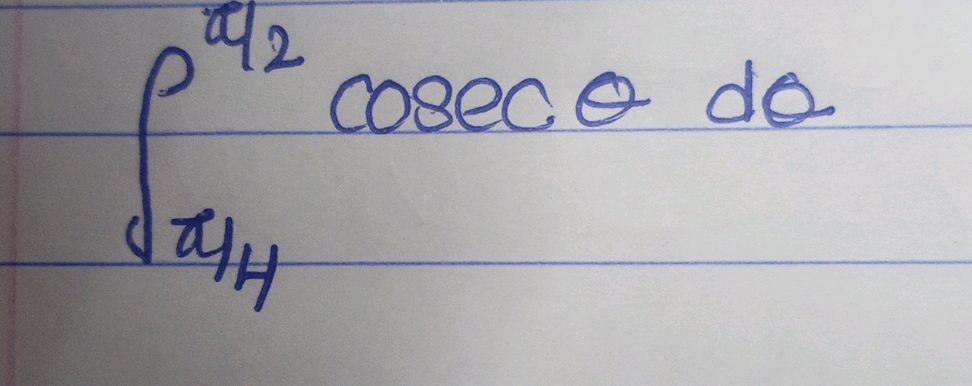 ∫_{π/4}^{π/2} cosec θ dθ